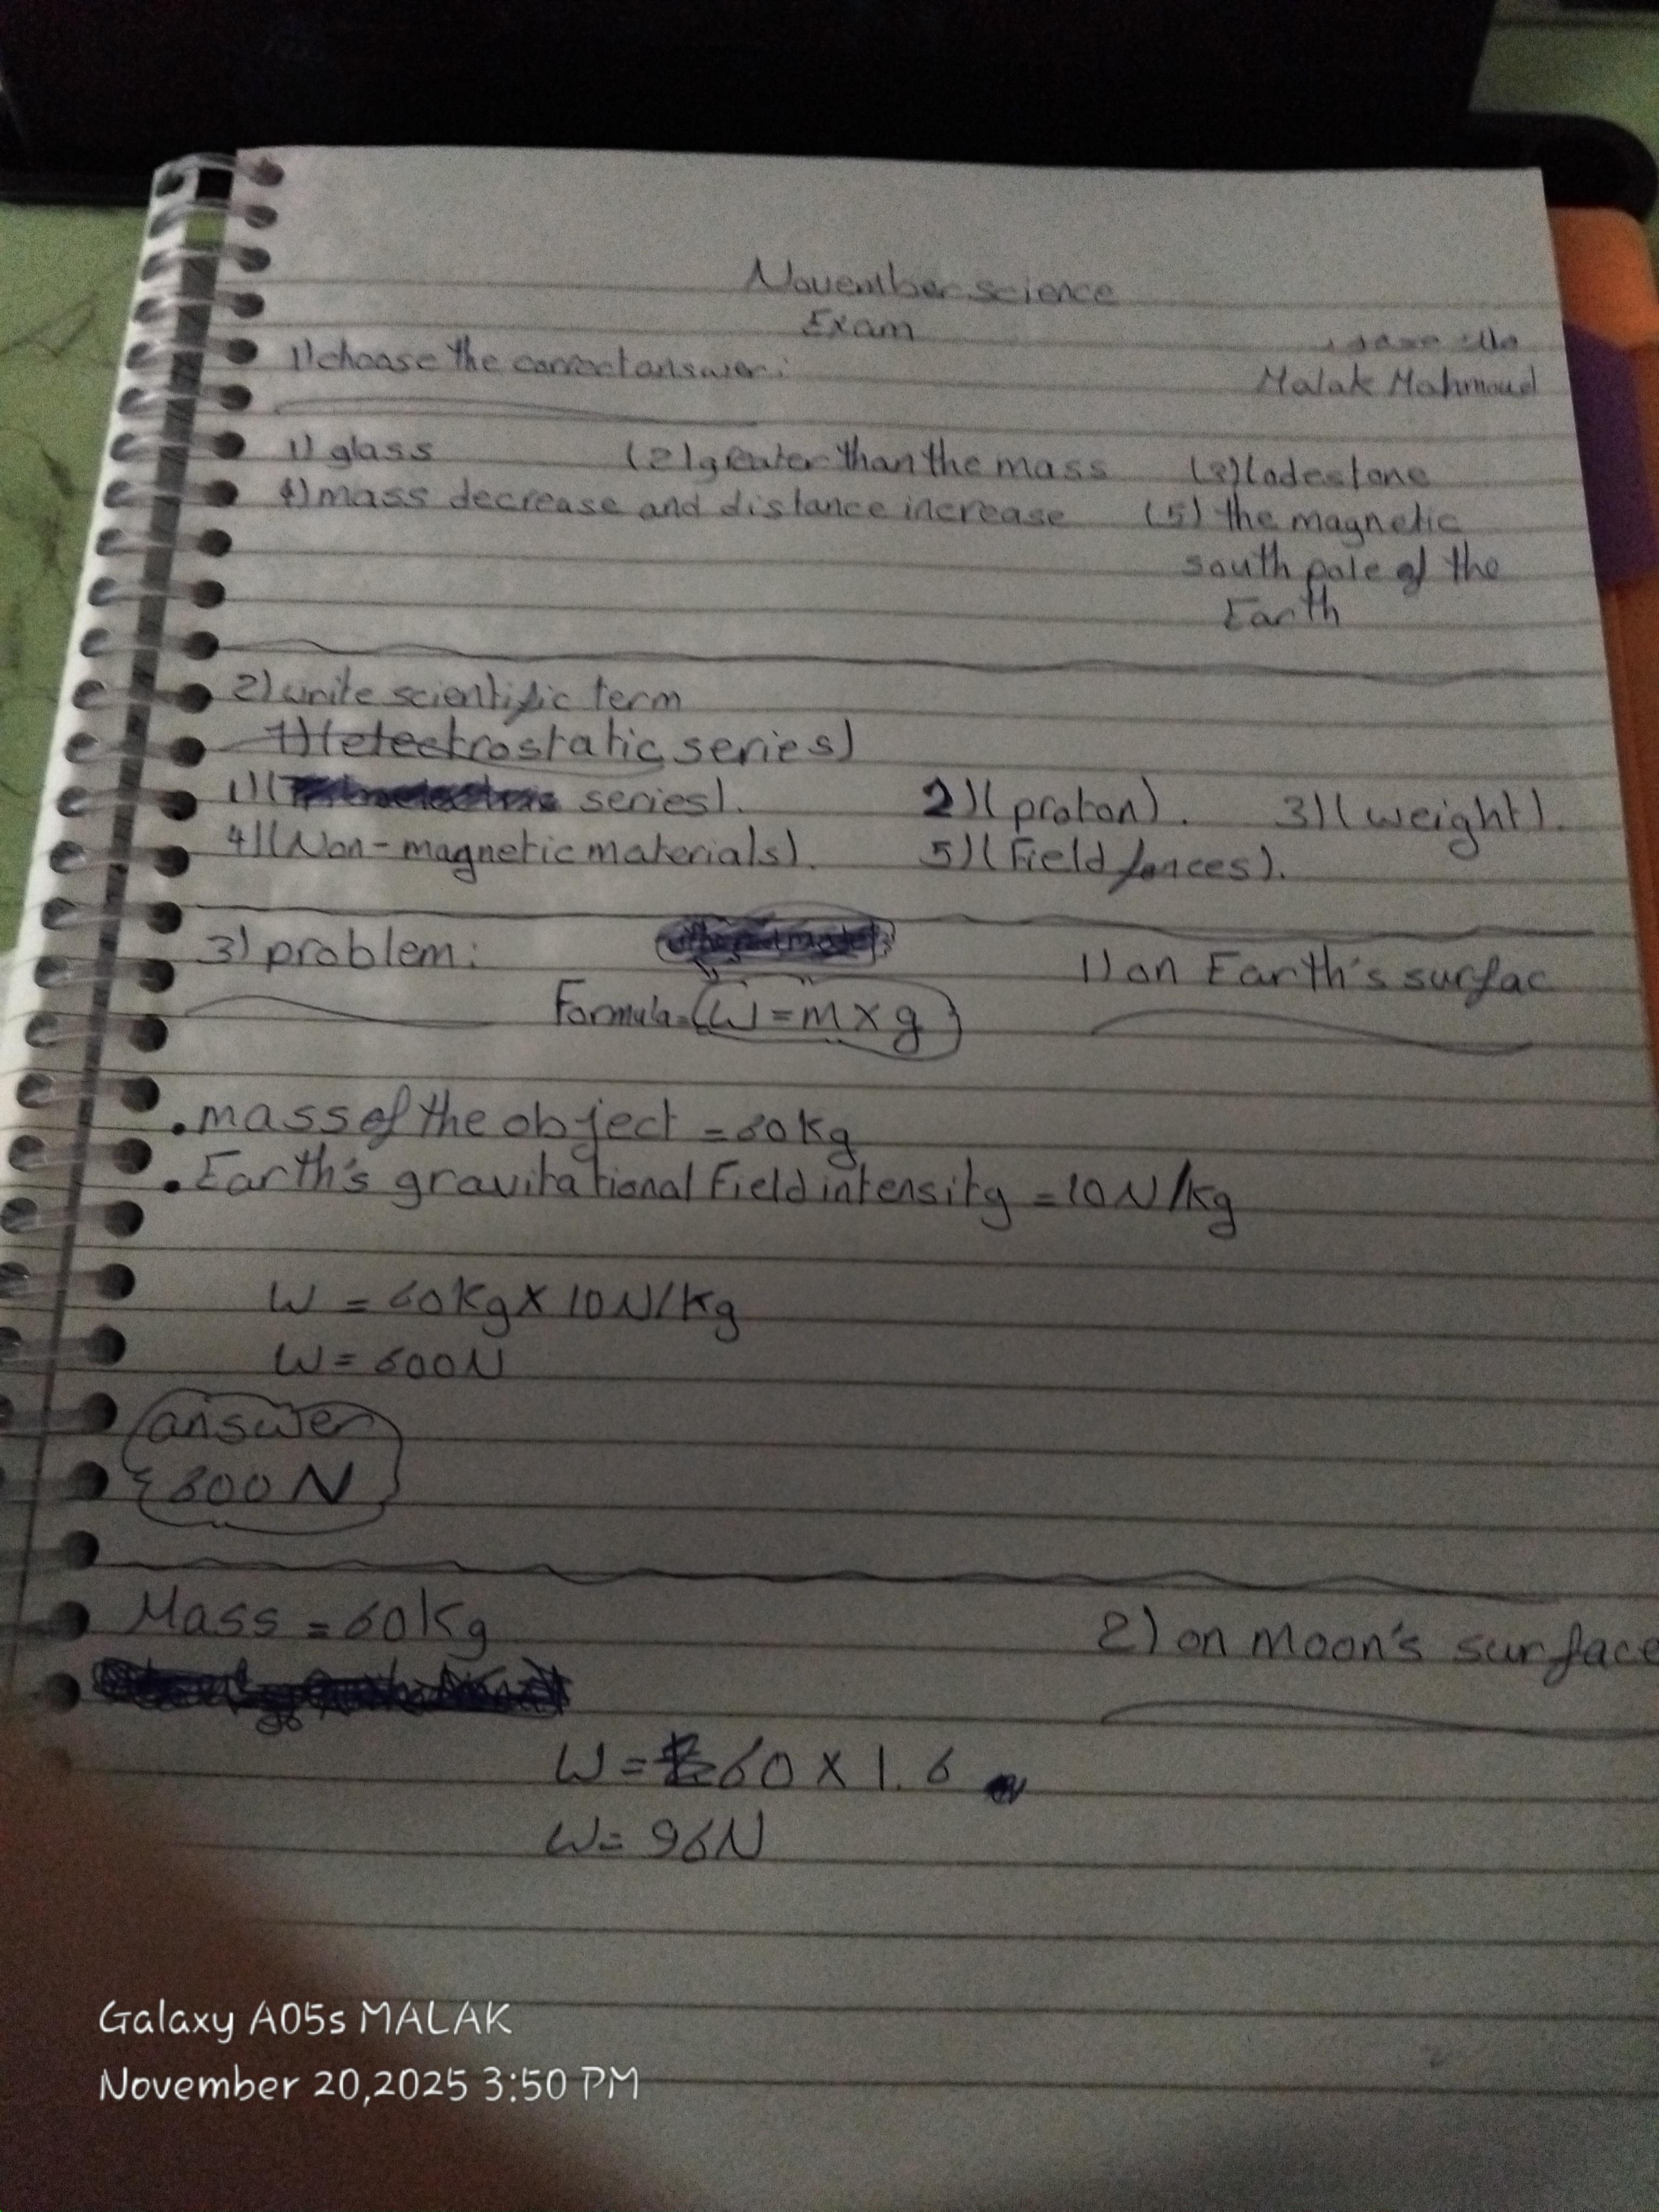 November science
Exam
1) choose the correct answer:
Malak Mahmoud
1) glass (2) greater than the mass (3) lodestone
4) mass decrease and distance increase (5) the magnetic
south pole of the
Earth
2) write scientific term
1) (electrostatic series)
1) ( series). 2) (proton). 3) (weight).
4) (Non-magnetic materials). 5) (Field forces).
3) problem: 1) on Earth's surfac
Formula = (W = m x g)
. mass of the object = 60 kg
. Earth's gravitational Field intensity = 10 N/kg
W = 60 kg x 10 N/kg
W = 600 N
answer
600 N
Mass = 60 kg
2) on moon's surface
W = 60 x 1.6
W = 96 N
Galaxy A05s MALAK
November 20,2025 3:50 PM